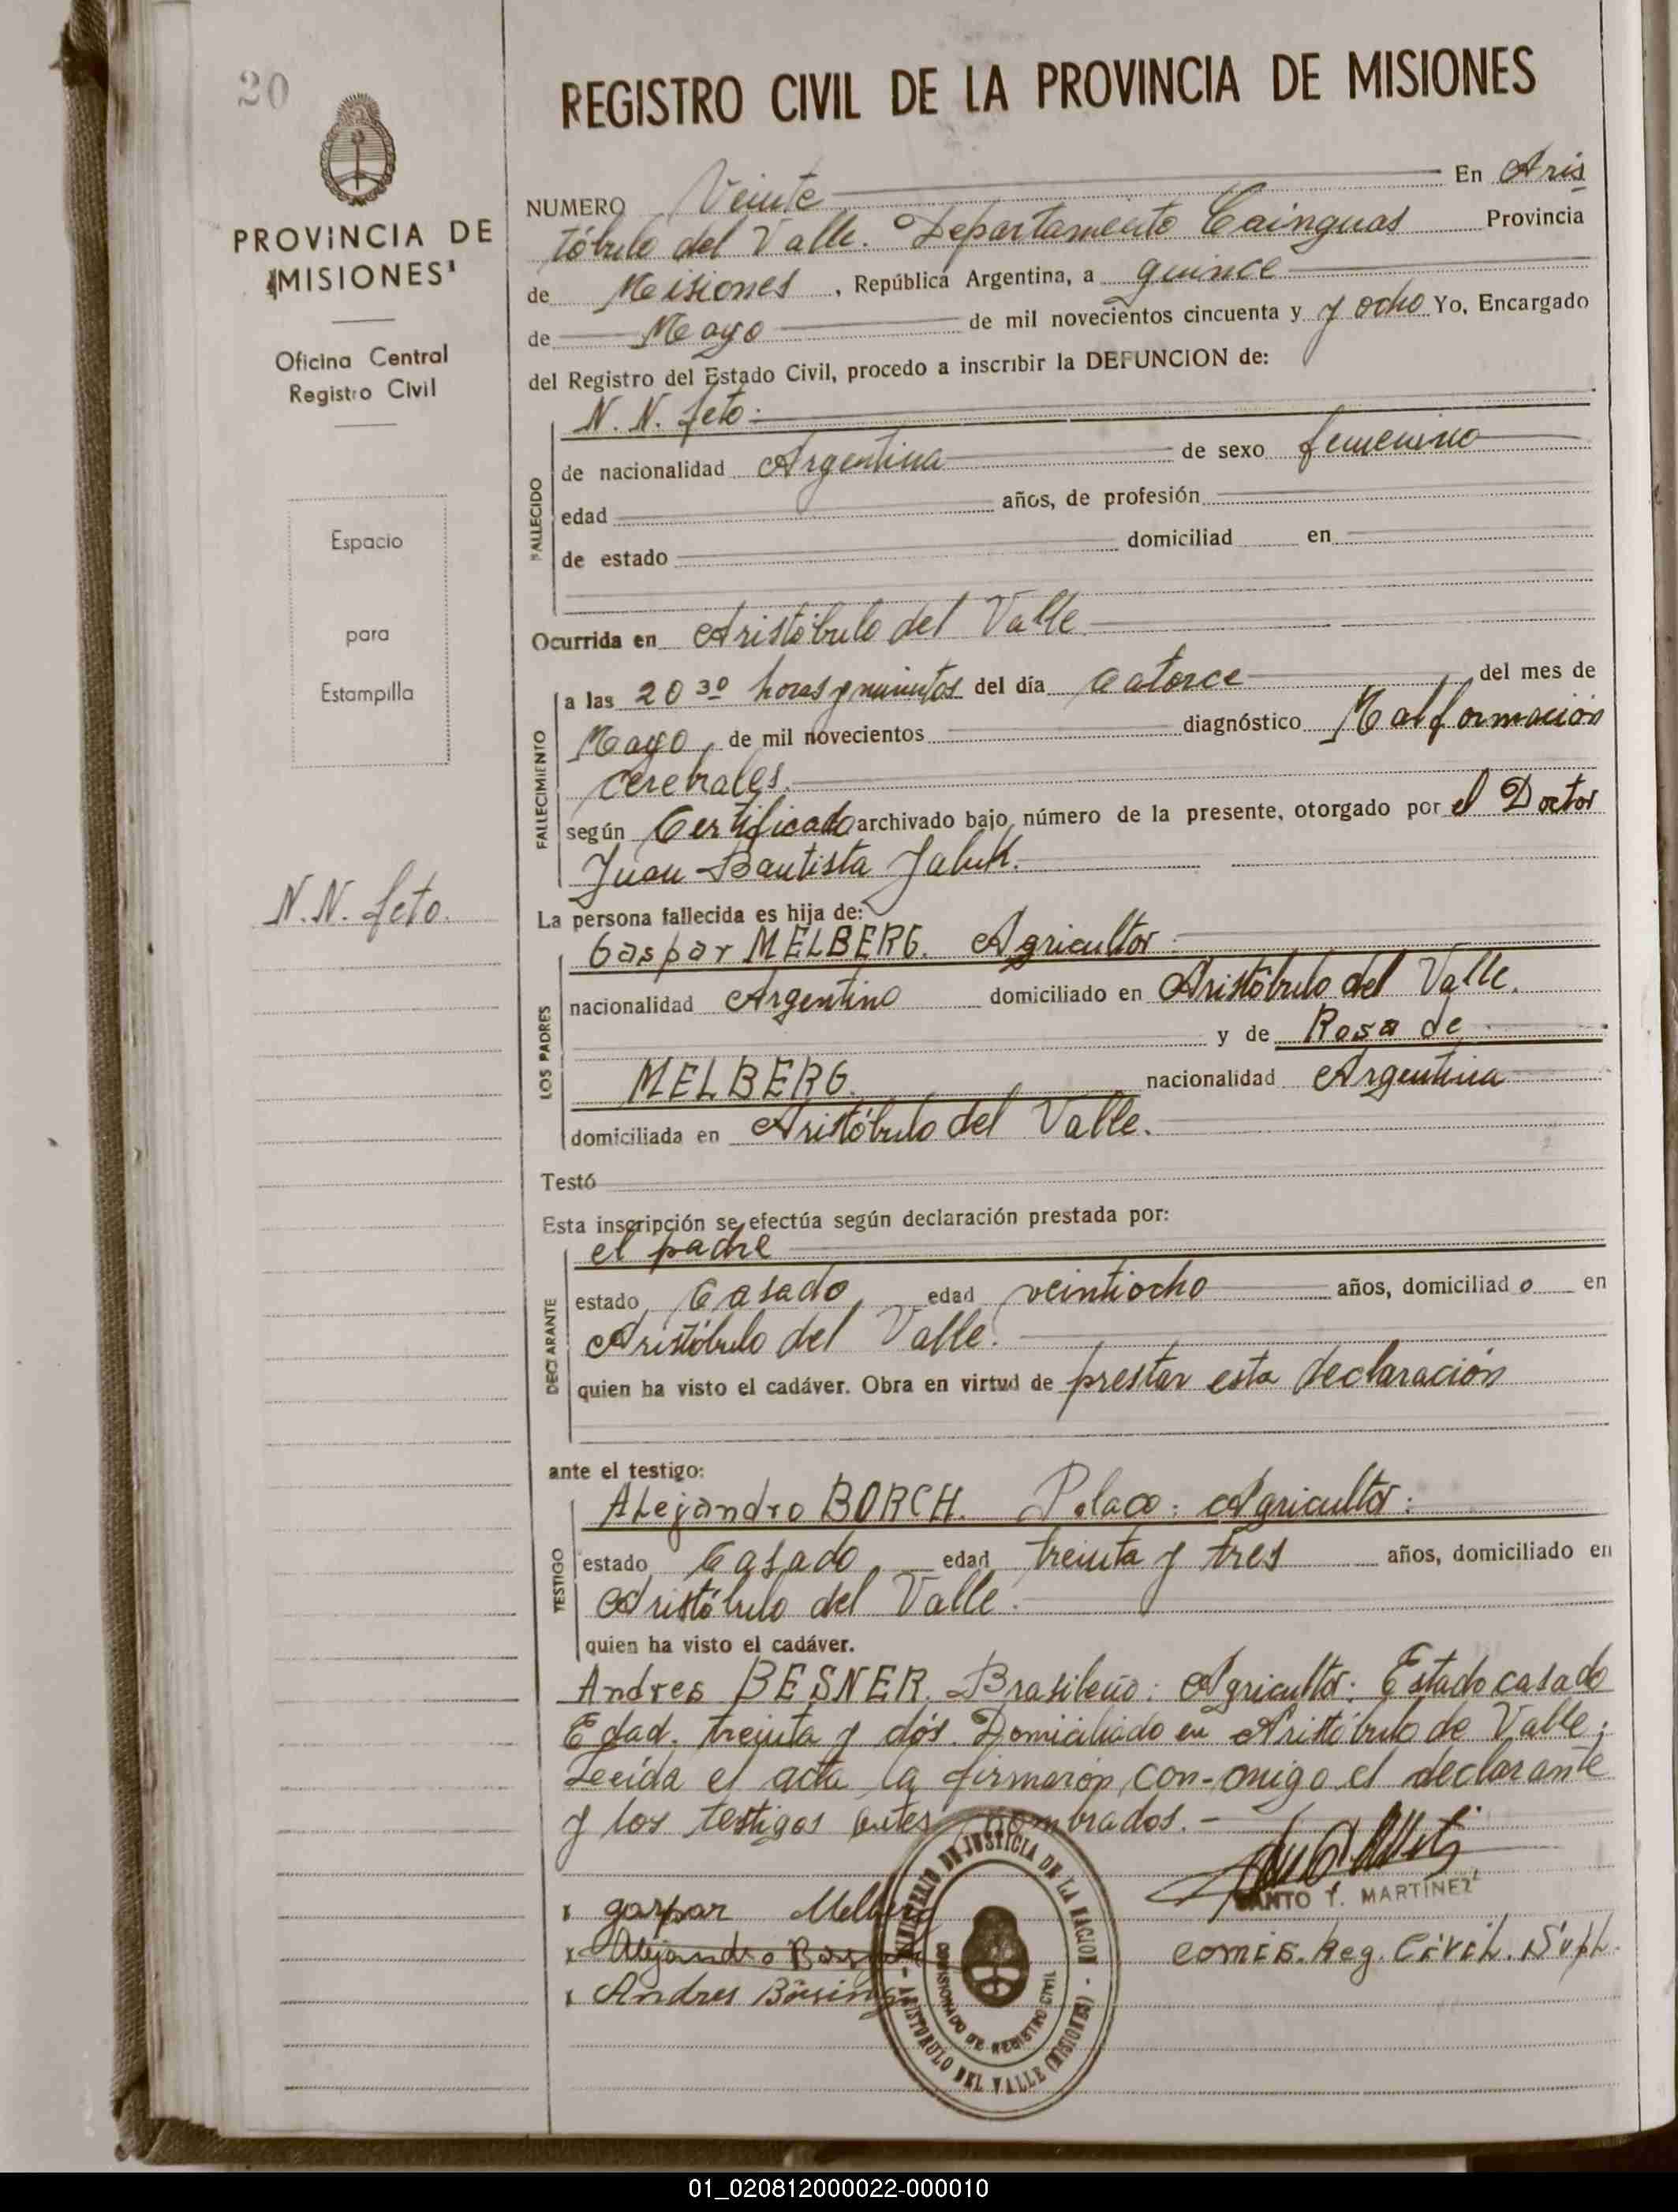 20
REGISTRO CIVIL DE LA PROVINCIA DE MISIONES
PROVINCIA DE
MISIONES
Oficina Central
Registro Civil
Espacio
para
Estampilla
N. N. feto.
NUMERO Veinte En Aris
tóbulo del Valle. Departamento Cainguas Provincia
de Misiones, República Argentina, a quince
de Mayo de mil novecientos cincuenta y y ocho Yo, Encargado
del Registro del Estado Civil, procedo a inscribir la DEFUNCION de:
N. N. feto.
FALLECIDO
de nacionalidad Argentina de sexo femenino
edad años, de profesión
de estado domiciliad en
Ocurrida en Aristóbulo del Valle
FALLECIMIENTO
a las 20 30 horas y minutos del día catorce del mes de
Mayo, de mil novecientos diagnóstico Malformación
cerebrales.
según Certificado archivado bajo número de la presente, otorgado por el Doctor
Juan Bautista
La persona fallecida es hija de:
LOS PADRES
Gaspar MELBERG. Agricultor.
nacionalidad Argentino domiciliado en Aristóbulo del Valle.
y de Rosa de
MELBERG. nacionalidad Argentina
domiciliada en Aristóbulo del Valle.
Testó
Esta inscripción se efectúa según declaración prestada por:
DECLARANTE
el padre
estado Casado edad veintiocho años, domiciliad o en
Aristóbulo del Valle.
quien ha visto el cadáver. Obra en virtud de prestar esta declaración
ante el testigo:
TESTIGO
Alejandro BORCH. Polaco. Agricultor.
estado Casado edad treinta y tres años, domiciliado en
Aristóbulo del Valle.
quien ha visto el cadáver.
Andres BESNER. Brasileño. Agricultor. Estado casado
Edad. treinta y dós. Domiciliado en Aristóbulo de Valle.
Leeida el acta la firmarón con-migo el declarante
y los testigos antes nombrados. -
x gaspar Melberg
x Alejandro
x Andres
SANTO Y. MARTINEZ
comis. Reg. Civil. Supl.
MINISTERIO DE JUSTICIA DE LA NACION - ARISTOBULO DEL VALLE (MISIONES) -
COMISIONADO DE REGISTRO CIVIL
01_020812000022-000010